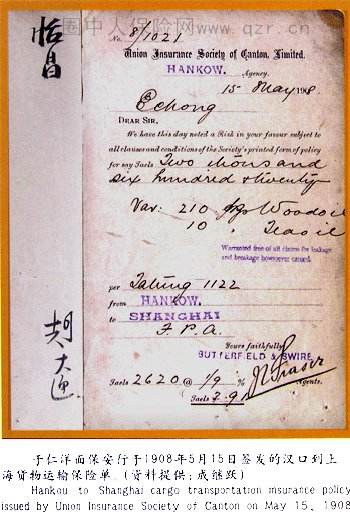 圈中人保险网 www.qzr.cn
怡昌
No. 8/1021
Union Insurance Society of Canton, Limited.
HANKOW. Agency.
15 May 1908.
Echong
DEAR SIR,
We have this day noted a Risk in your favour subject to
all clauses and conditions of the Society's printed form of policy
for say Taels Two thousand
six hundred & twenty
Var: 210 Woodoil
10 " Teaoil
Warranted free of all claims for leakage
and breakage howsoever caused.
per Tatung 1122
from HANKOW.
to SHANGHAI
F.P.A.
Yours faithfully
BUTTERFIELD & SWIRE
Agents.
Taels 2620 @ 1/9 %
Taels 2.91
于仁洋面保安行于1908年5月15日签发的汉口到上
海货物运输保险单.(资料提供:成继跃)
Hankou to Shanghai cargo transportation insurance policy
issued by Union Insurance Society of Canton on May 15, 1908